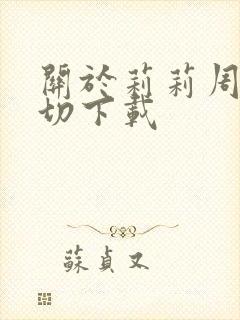 關於莉莉周
切下載
蘇貞又